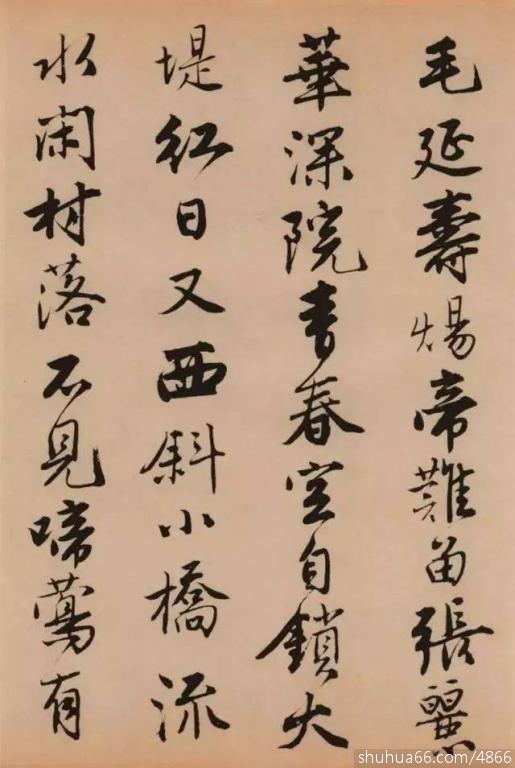 毛延壽煬帝難留張麗
華深院青春空自鎖大
堤紅日又西斜小橋流
水閑村落不見啼鶯有
shuhua66.com/4866